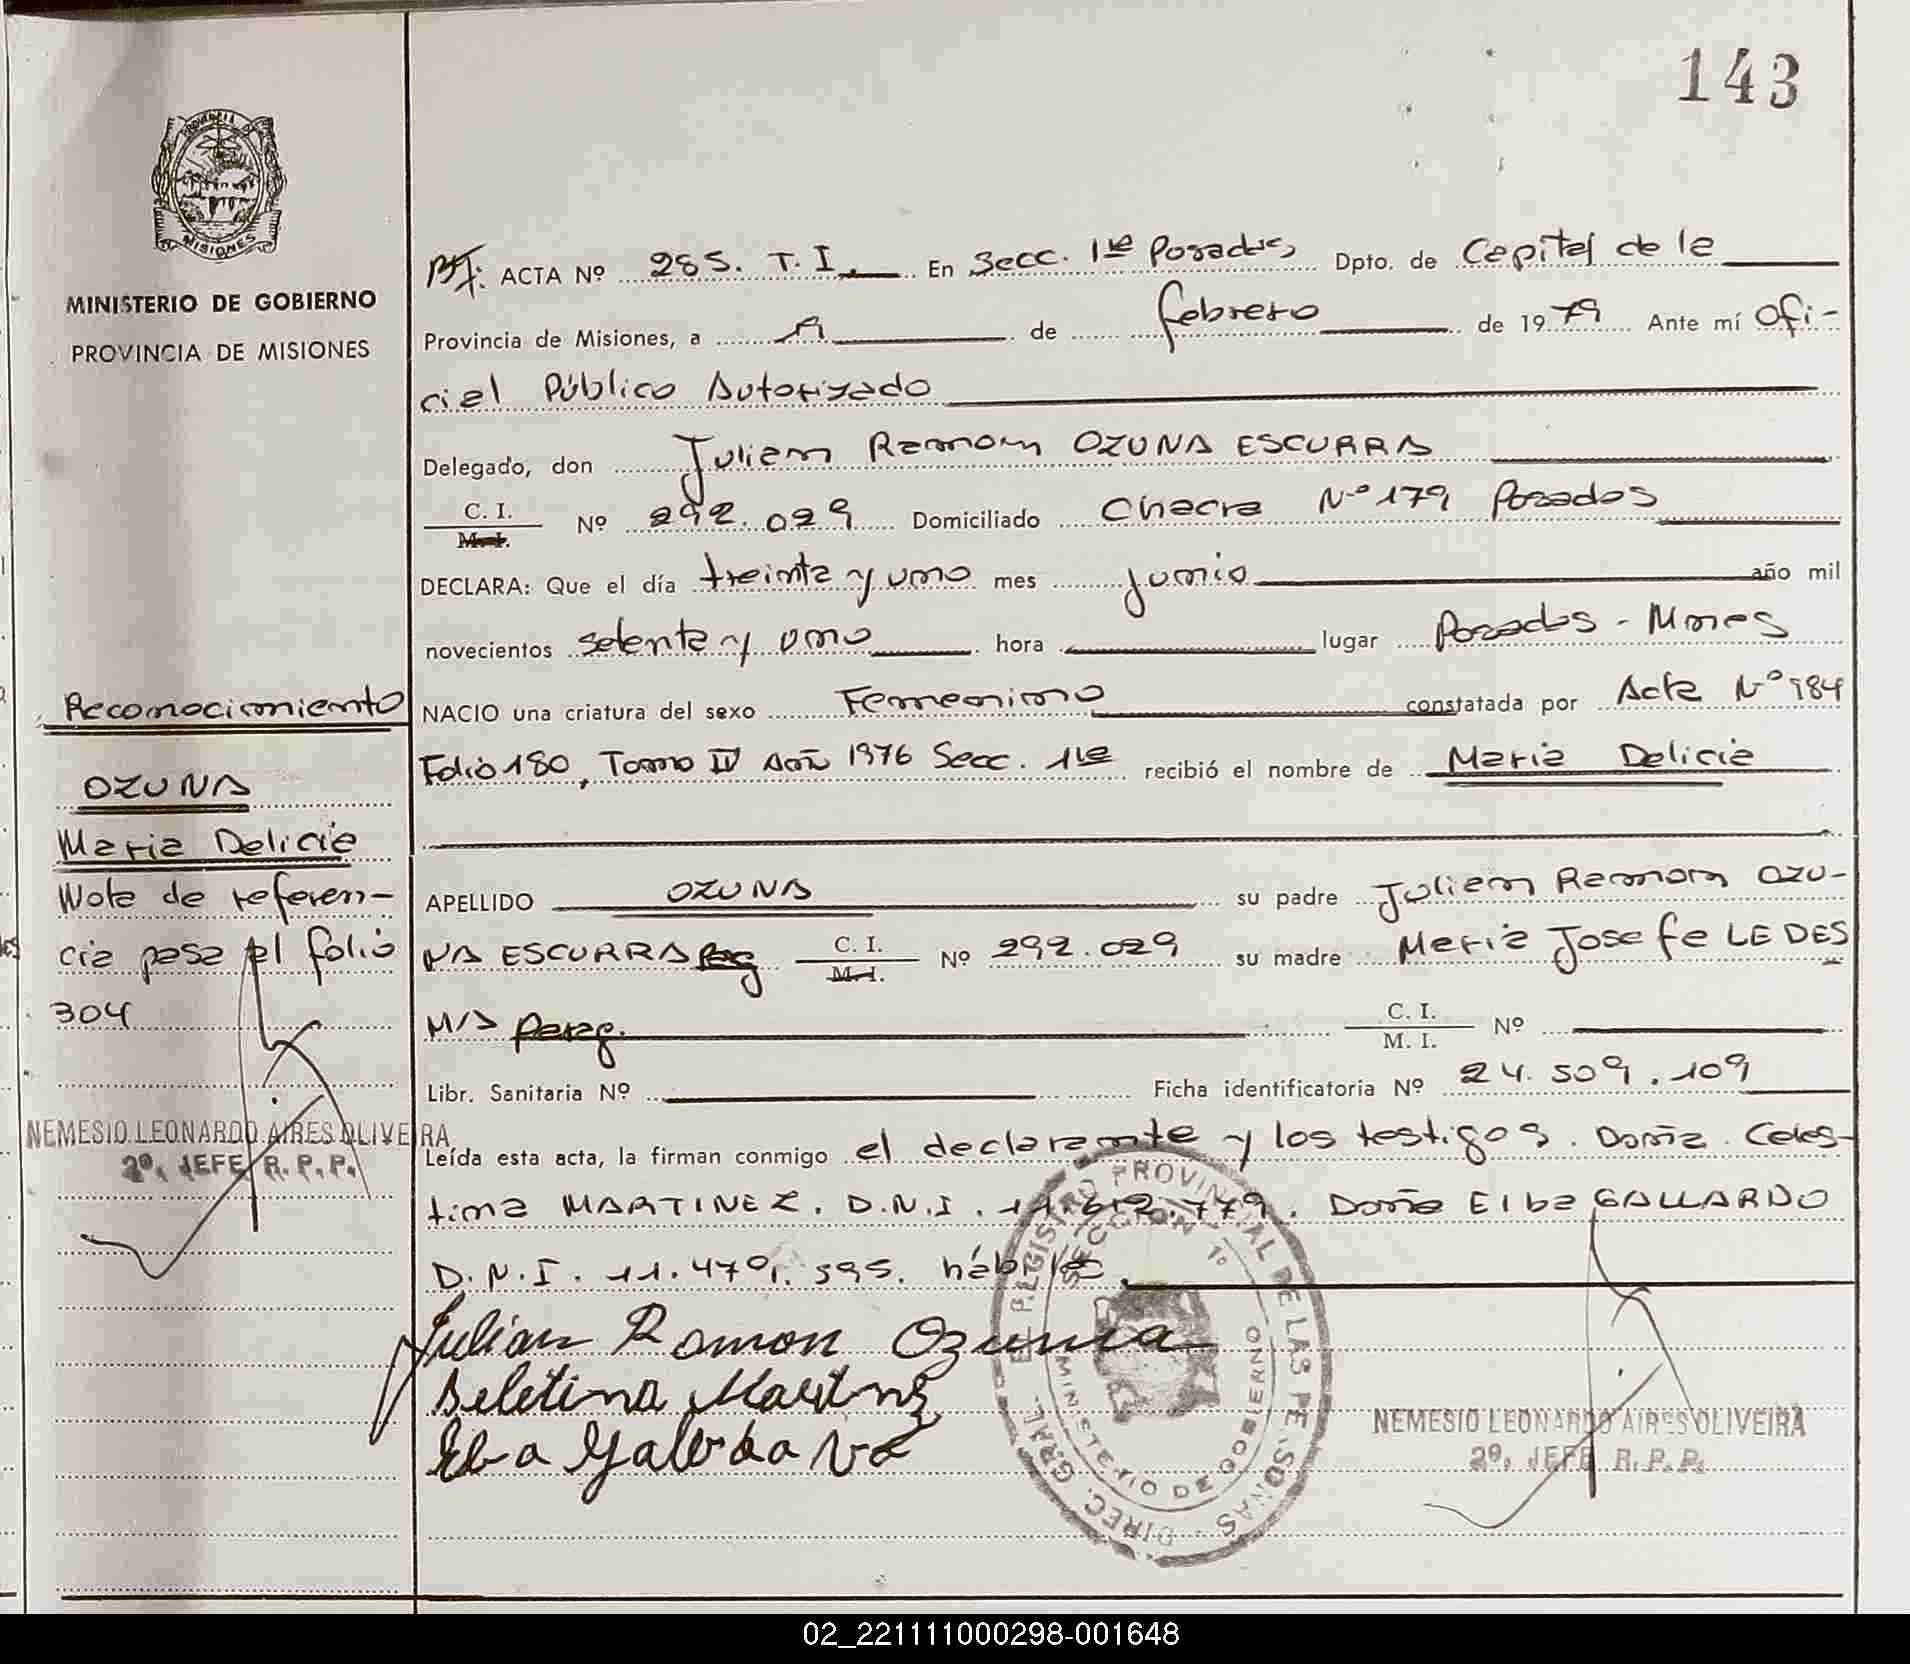 143
PROVINCIA DE
MISIONES
MINISTERIO DE GOBIERNO
PROVINCIA DE MISIONES
ACTA Nº 285. T. I. En Secc. 1ra Posadas Dpto. de Capital de la
Provincia de Misiones, a de febrero de 1979 Ante mí Ofi-
cial Público Autorizado
Delegado, don Julian Ramon OZUNA ESCURRA
C. I.
M. I.
Nº 292.029 Domiciliado Chacra Nº 179 Posadas
DECLARA: Que el día treinta y uno mes junio año mil
novecientos setenta y uno hora lugar Posadas - Mnes
NACIO una criatura del sexo Femenino constatada por Acta Nº 984
Folio 180, Tomo IV Año 1976 Secc. 1ra recibió el nombre de Maria Delicia
APELLIDO OZUNA su padre Julian Ramon OZU-
NA ESCURRA C. I. Nº 292.029 su madre Maria Josefa LEDES
M. I.
MA parag. C. I. Nº
M. I.
Libr. Sanitaria Nº Ficha identificatoria Nº 24.509.109
Leída esta acta, la firman conmigo el declarante y los testigos. Doña Celes-
tina MARTINEZ. D.N.I. 11.612.779. Doña Elba GALLARDO
D.N.I. 11.479.595. hábiles.
Julian Ramon Ozuna
Eba
Reconocimiento
OZUNA
Maria Delicia
Nota de referen-
cia pasa al folio
304
NEMESIO LEONARDO AIRES OLIVEIRA
2º. JEFE R. P. P.
DIREC. GRAL. REGISTRO PROVINCIAL DE LAS PERSONAS
SECCION 1º
MINISTERIO DE GOBIERNO
NEMESIO LEONARDO AIRES OLIVEIRA
2º. JEFE R. P. P.
02_221111000298-001648